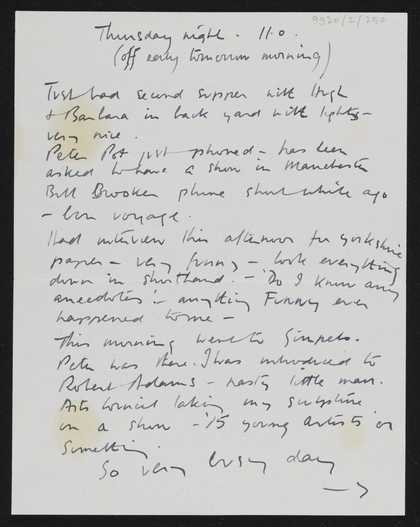 9920/2/250
Thursday night. 11.0.
(off early tomorrow morning)
Just had second supper with Hugh
& Barbara in back yard with lights -
very nice.
Peter Pot just phoned - has been
asked to have a show in Manchester
Bill Brooker phone short while ago
- bon voyage.
Had interview this afternoon for Yorkshire
paper - very funny - took everything
down in shorthand. - 'Do I know any
anecdotes' - anything Funny ever
happened to me -
This morning went to Gimpels.
Peter was there. I was introduced to
Robert Adams - nasty little man.
Arts Council taking my sculpture
in a show - '15 young artists' or
something.
So very busy day
→